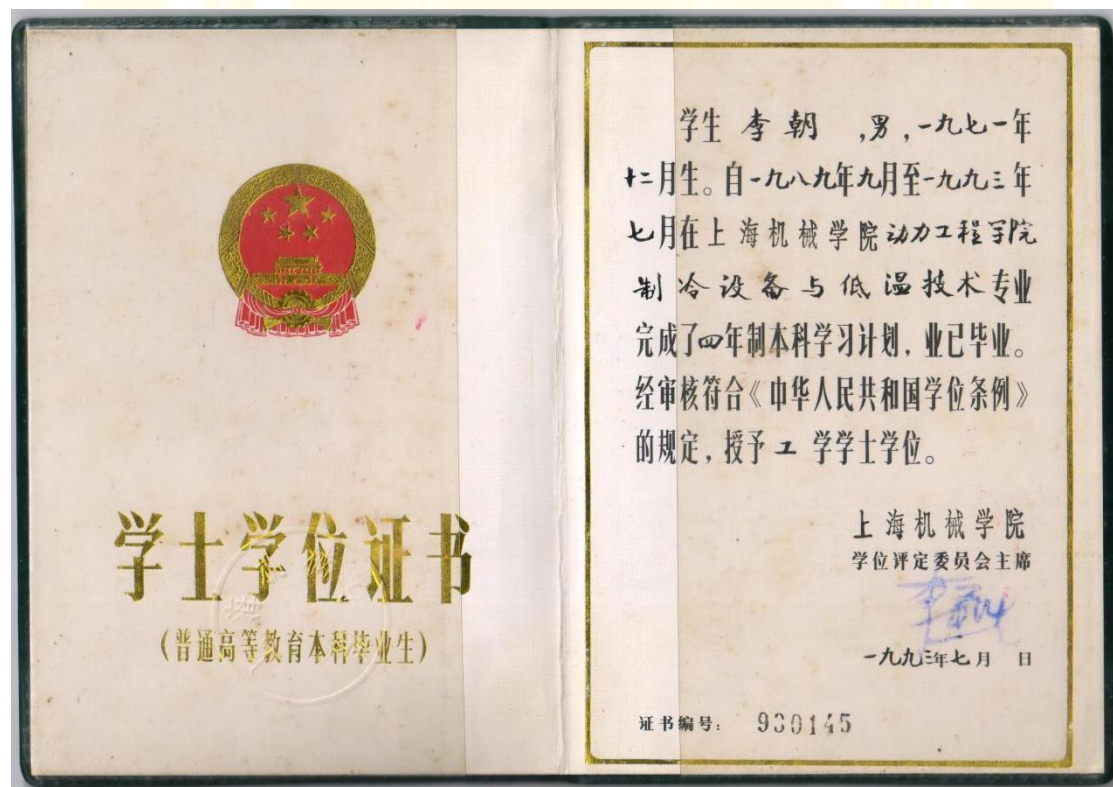 学士学位证书
(普通高等教育本科毕业生)
学生 李朝 ,男,一九七一年
十二月生。自一九八九年九月至一九九三年
七月在上海机械学院动力工程学院
制冷设备与低温技术专业
完成了四年制本科学习计划,业已毕业。
经审核符合《中华人民共和国学位条例》
的规定,授予工学学士学位。
上海机械学院
学位评定委员会主席
一九九三年七月 日
证书编号: 930145